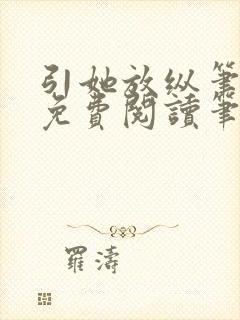 引她放纵笔
免費閱讀筆
羅濤